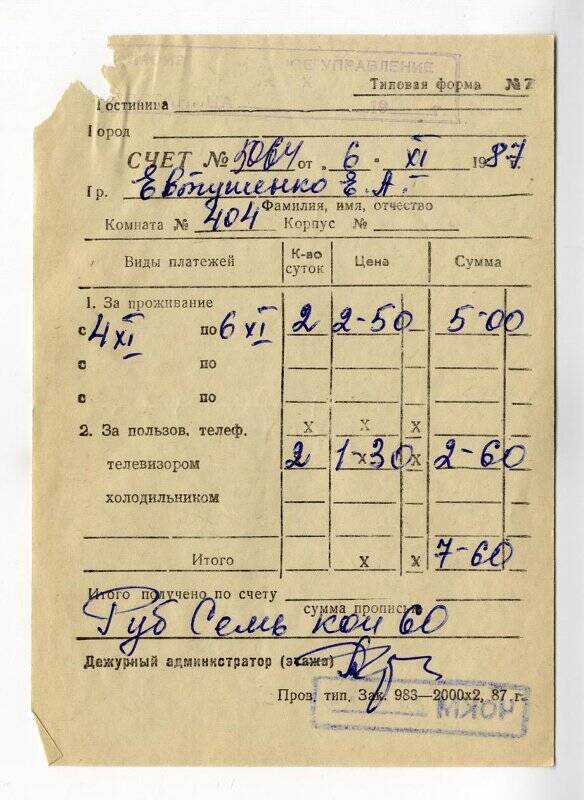 ОЕ УПРАВЛЕНИЕ
Типовая форма № 7
Гостиница
Город
СЧЕТ № 5064 от „ 6 " XI 1987
Гр. Евтушенко Е. А.
Фамилия, имя, отчество
Комната № 404 Корпус №
Виды платежей К-во суток Цена Сумма
1. За проживание
с 4 XI по 6 XI 2 2-50 5-00
с по
с по
2. За пользов. телеф. х х х
телевизором 2 1-30 х 2-60
холодильником
Итого х х 7-60
Итого получено по счету
сумма прописью
Руб Семь коп 60
Дежурный администратор (этажа)
Пров. тип. Зак. 983—2000х2, 87 г.
ЧОКМ